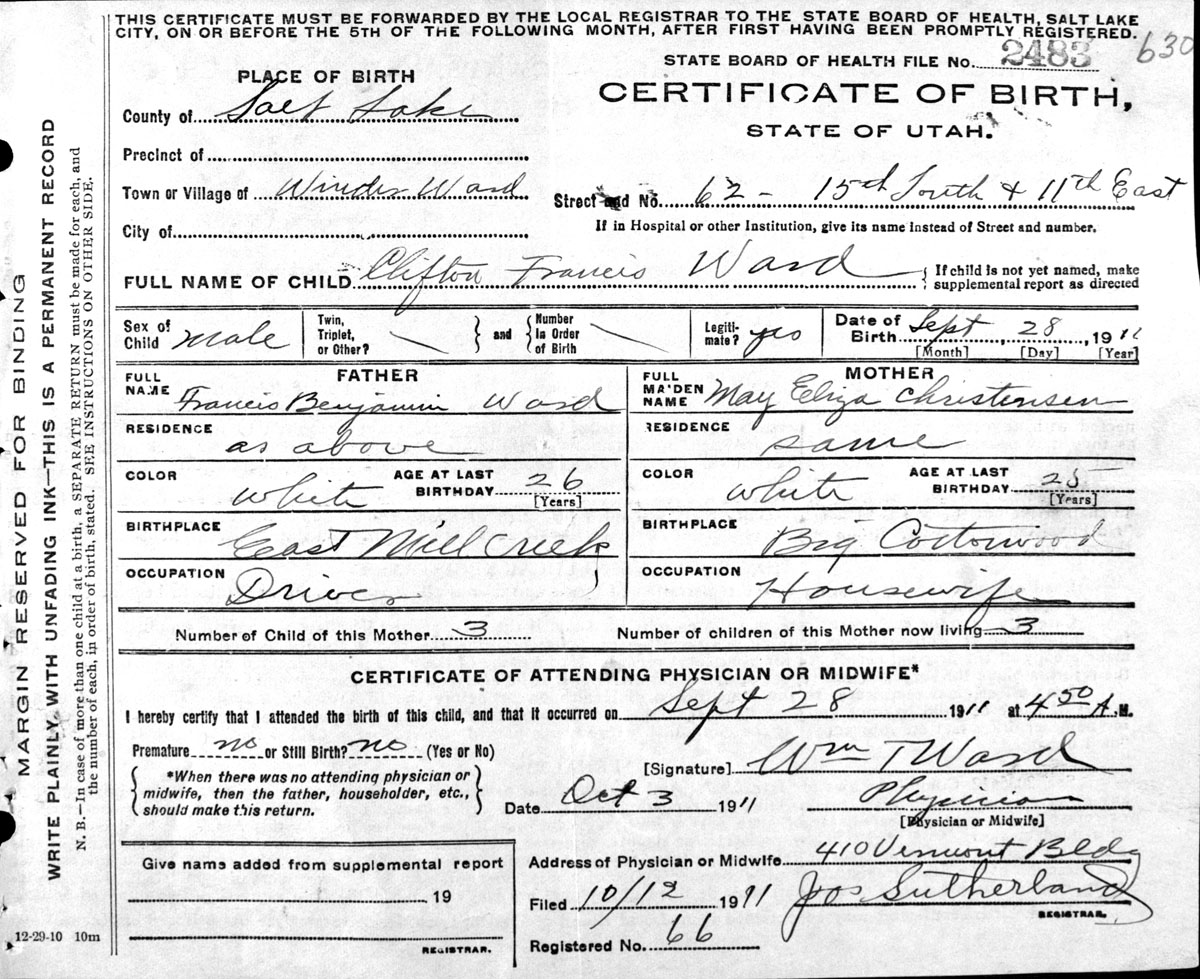 THIS CERTIFICATE MUST BE FORWARDED BY THE LOCAL REGISTRAR TO THE STATE BOARD OF HEALTH, SALT LAKE
CITY, ON OR BEFORE THE 5TH OF THE FOLLOWING MONTH, AFTER FIRST HAVING BEEN PROMPTLY REGISTERED.
630
STATE BOARD OF HEALTH FILE No. 2483
PLACE OF BIRTH
CERTIFICATE OF BIRTH,
STATE OF UTAH.
County of Salt Lake
Precinct of
Town or Village of Winder Ward
Street and No. 62 - 15th South & 11th East
City of
If in Hospital or other Institution, give its name instead of Street and number.
FULL NAME OF CHILD Clifton Francis Ward { If child is not yet named, make
supplemental report as directed
Sex of
Child Male
Twin,
Triplet,
or Other?
} and {
Number
in Order
of Birth
Legiti-
mate? yes
Date of
Birth Sept, 28, 1911
[Month] [Day] [Year]
FATHER
FULL
NAME Francis Benjamin Ward
MOTHER
FULL
MAIDEN
NAME May Eliza Christensen
RESIDENCE
as above
RESIDENCE
same
COLOR
white
AGE AT LAST
BIRTHDAY 26
[Years]
COLOR
white
AGE AT LAST
BIRTHDAY 25
[Years]
BIRTHPLACE
East Mill Creek
BIRTHPLACE
Big Cottonwood
OCCUPATION
Driver
OCCUPATION
Housewife
Number of Child of this Mother 3
Number of children of this Mother now living 3
CERTIFICATE OF ATTENDING PHYSICIAN OR MIDWIFE*
I hereby certify that I attended the birth of this child, and that it occurred on Sept 28 1911 at 4 50 A. M.
Premature no or Still Birth? no (Yes or No)
{ *When there was no attending physician or
midwife, then the father, householder, etc.,
should make this return. }
[Signature] Wm T Ward
Date Oct 3 1911
Physician
[Physician or Midwife]
Give name added from supplemental report
19
REGISTRAR.
Address of Physician or Midwife 410 Vermont Bldg
Filed 10/12 1911 Jos Sutherland
REGISTRAR.
Registered No. 66
12-29-10 10m
MARGIN RESERVED FOR BINDING
WRITE PLAINLY WITH UNFADING INK—THIS IS A PERMANENT RECORD
N. B.—In case of more than one child at a birth, a SEPARATE RETURN must be made for each, and
the number of each, in order of birth, stated. SEE INSTRUCTIONS ON OTHER SIDE.